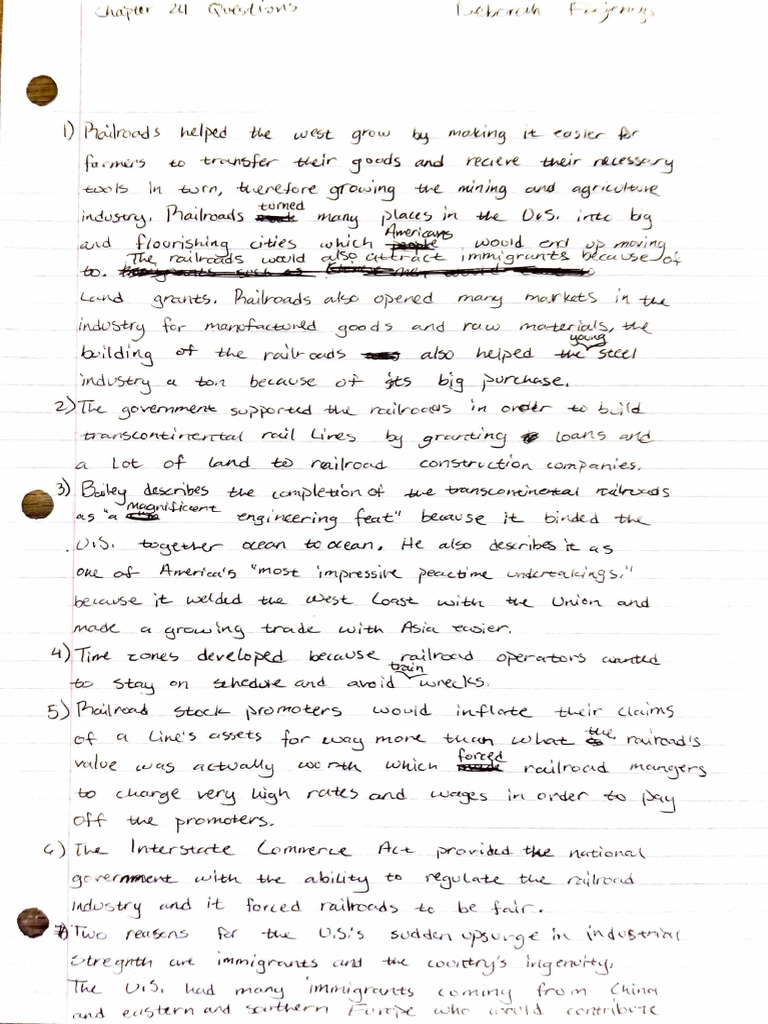 Chapter 24 Questions Deborah
1) Railroads helped the west grow by making it easier for
farmers to transfer their goods and recieve their necessary
tools in torn, therefore growing the mining and agriculture
industry. Railroads turned many places in the U.S. into big
and flourishing cities which Americans would end up moving
to. The railroads would also attract immigrants because of
Land grants. Railroads also opened many markets in the
industry for manufactured goods and raw materials, the
building of the railroads also helped the young steel
industry a ton because of its big purchase.
2) The government supported the railroads in order to build
transcontinental rail lines by granting loans and
a lot of land to railroad construction companies.
3) Bailey describes the completion of the transcontinental railroads
as "a magnificent engineering feat" because it binded the
U.S. together ocean to ocean. He also describes it as
one of America's "most impressive peactime undertakings."
because it welded the West Coast with the Union and
made a growing trade with Asia easier.
4) Time zones developed because railroad operators wanted
to stay on schedule and avoid train wrecks.
5) Railroad stock promoters would inflate their claims
of a line's assets for way more than what the railroad's
value was actually worth which forced railroad mangers
to charge very high rates and wages in order to pay
off the promoters.
6) The Interstate Commerce Act provided the national
government with the ability to regulate the railroad
industry and it forced railroads to be fair.
7) Two reasons for the U.S.'s sudden upsurge in industrial
stregnth are immigrants and the country's ingenuity.
The U.S. had many immigrants coming from China
and eastern and southern Europe who would contribute